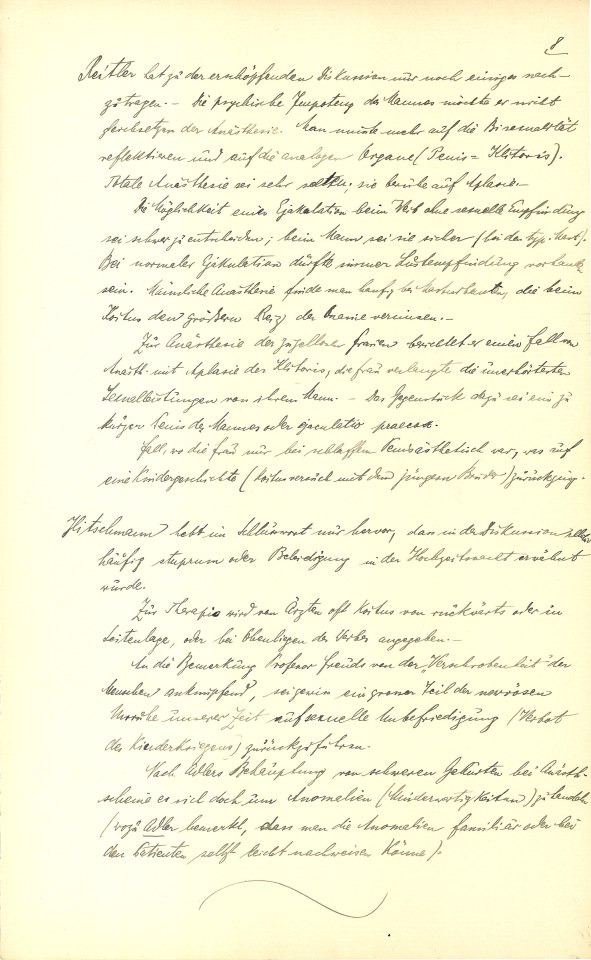 8
Reitler hat zu der erschöpfenden Diskussion nur noch einiges nach-
zutragen. – Die psychische Impotenz des Mannes möchte er nicht
gleichsetzen der Anästhesie. Man müsste mehr auf die Bisexualität
reflektieren und auf die analogen Organe (Penis = Klitoris).
Totale Anästhesie sei sehr selten; sie beruhe auf Aplasie. –
Die Möglichkeit einer Ejakulation beim Weib ohne sexuelle Empfindung
sei schwer zu entscheiden; beim Mann sei sie sicher (bei der typ. Mast).
Bei normaler Ejakulation dürfte immer Lustempfindung vorhanden
sein. Männliche Anästhesie finde man häufig bei Masturbanten, die beim
Koitus den größern Reiz der Onanie vermissen. –
Zur Anästhesie der zügellosen Frauen berichtet er einen Fall von
Anästh. mit Aplasie der Klitoris, die Frau verlangte die unerhörtesten
Sexualleistungen von ihrem Mann. – Das Gegenstück dazu sei ein zu
kurzer Penis des Mannes oder ejaculatio praecox.
Fall, wo die Frau nur bei schlaffem Penis ästhetisch war, was auf
eine Kindergeschichte (Koitusversuch mit dem jüngern Bruder) zurückging.
Hitschmann hebt im Schlusswort nur hervor, dass in der Diskussion
häufig stuprum oder Beleidigung in der Hochzeitsnacht erwähnt
wurde.
Zur Therapie wird von Ärzten oft Koitus von rückwärts oder in
Seitenlage, oder bei Obenliegen des Weibes angegeben. –
An die Bemerkung Professor Freuds von der Verschrobenheit der
Menschen anknüpfend, sei gewiss ein grosser Teil der nervösen
Unruhe unserer Zeit auf sexuelle Unbefriedigung (Verbot
des Kinderkriegens) zurückzuführen.
Nach Adlers Behauptung von schweren Geburten bei Anästh.
scheine es sich doch um Anomalien (Minderwertigkeiten) zu handeln
(wozu Adler bemerkt, dass man die Anomalien familiär oder bei
den Patienten selbst leicht nachweisen könne).